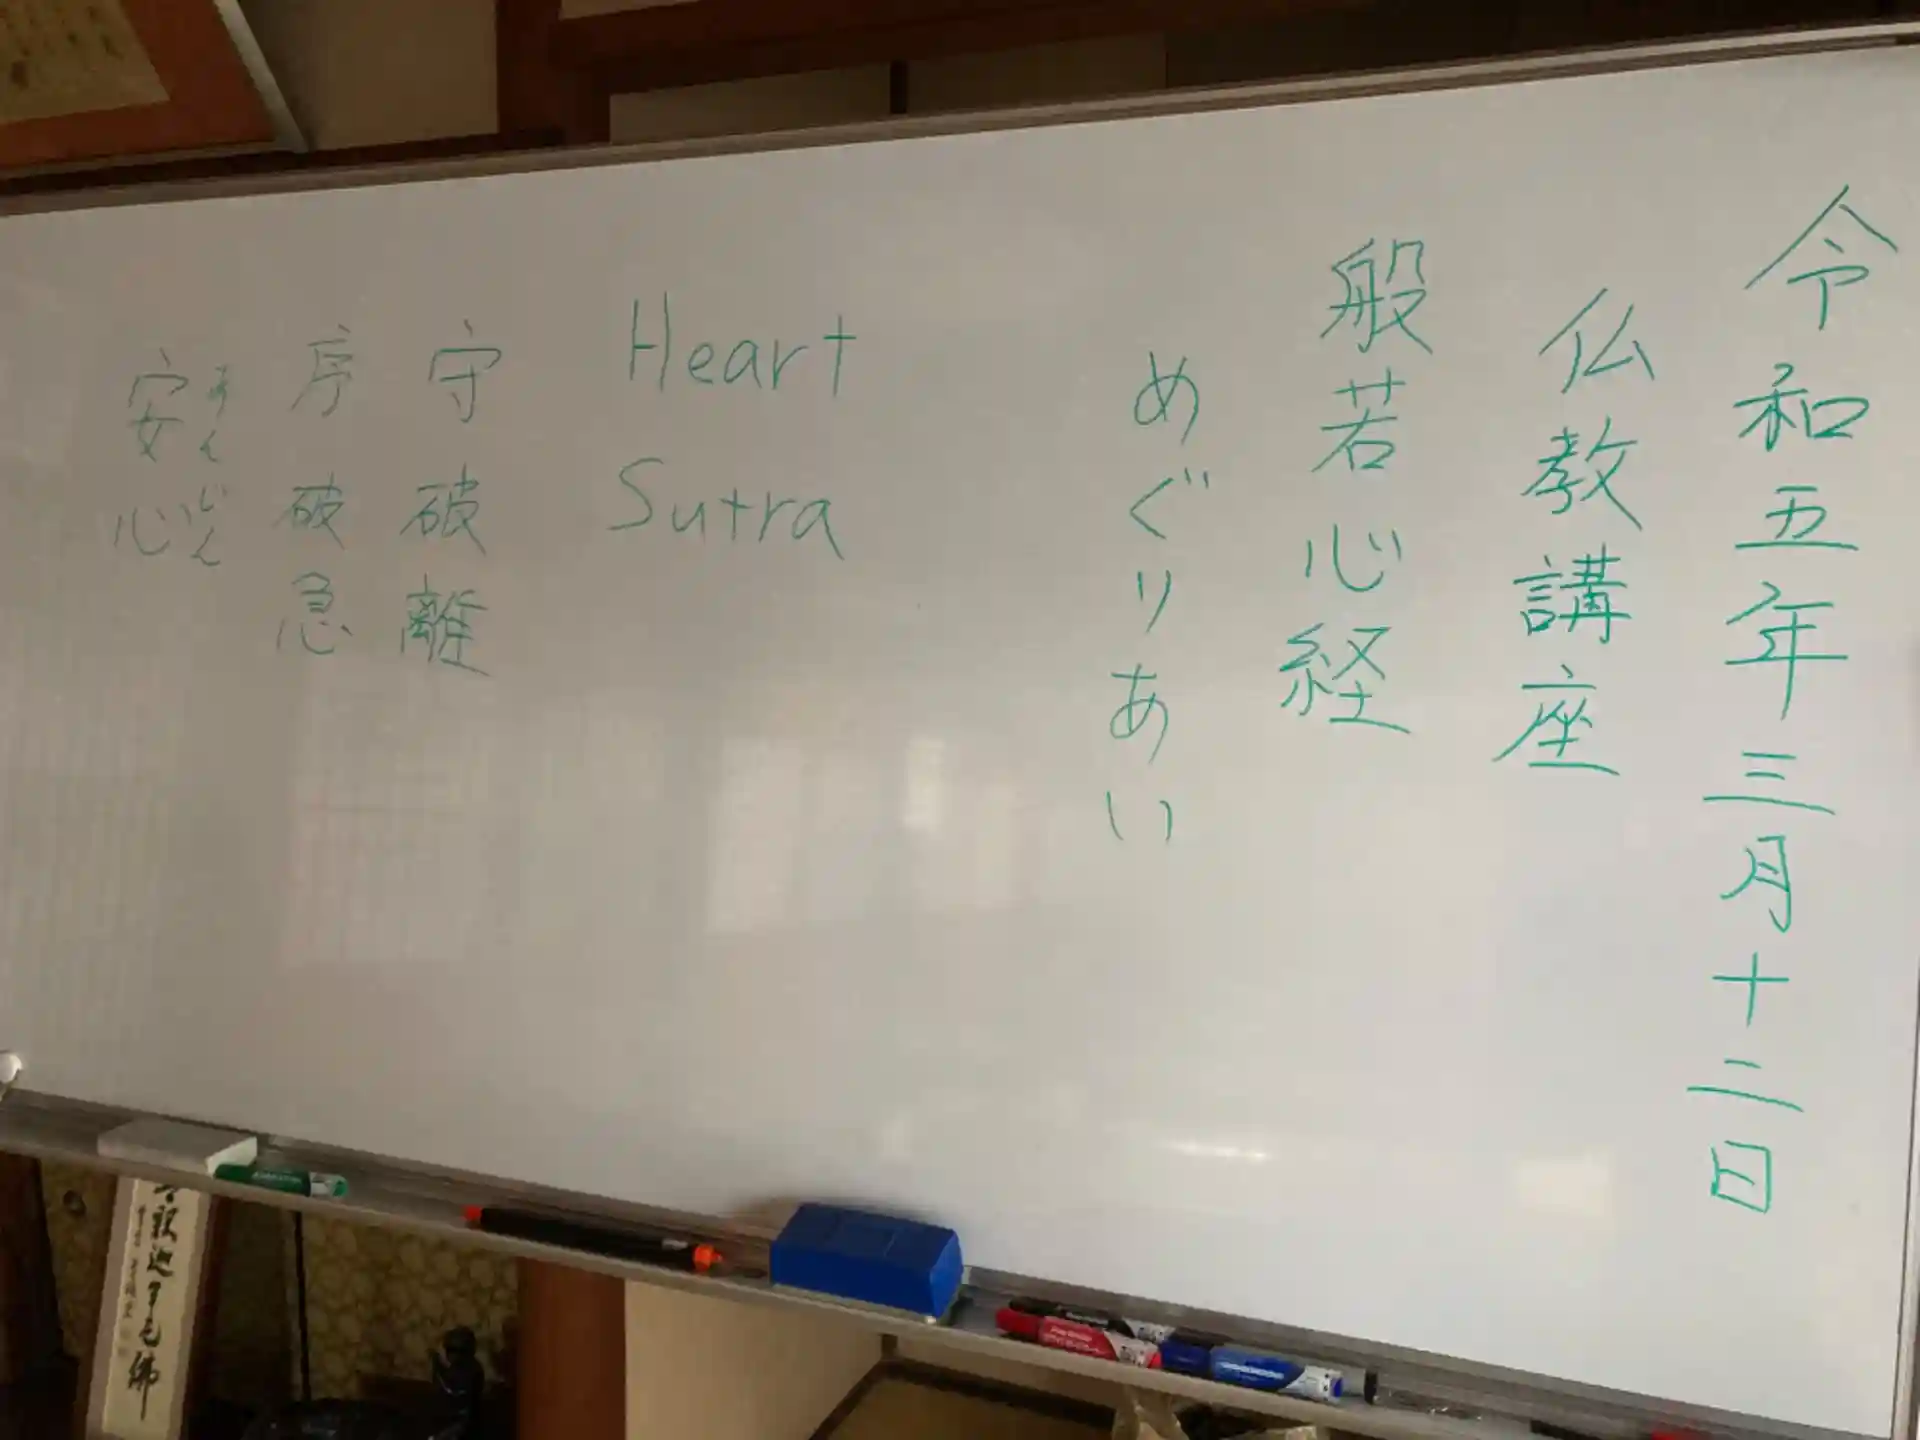 令和五年三月十二日
仏教講座
般若心経
めぐりあい
Heart
Sutra
守破離
序破急
あんじん
安心